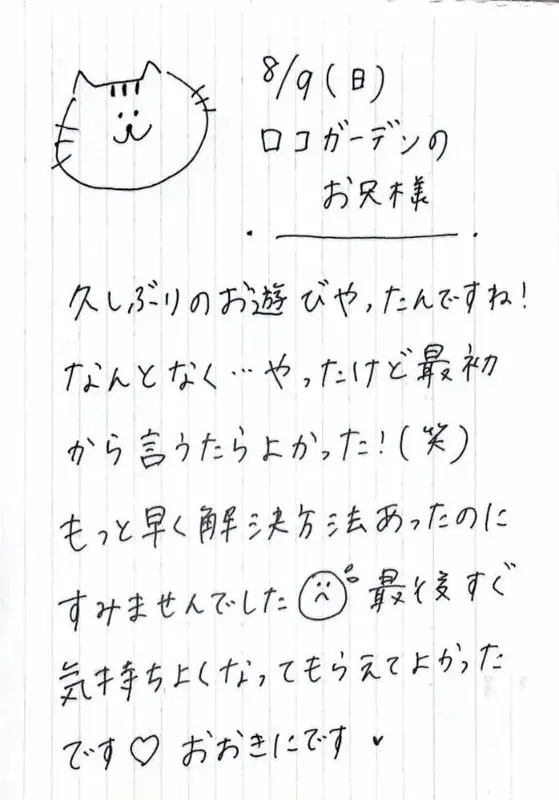 8/9(日)
ロコガーデンの
お兄様
久しぶりのお遊びやったんですね!
なんとなく…やったけど最初
から言うたらよかった!(笑)
もっと早く解決方法あったのに
すみませんでした 最後すぐ
気持ちよくなってもらえてよかった
です♡ おおきにです